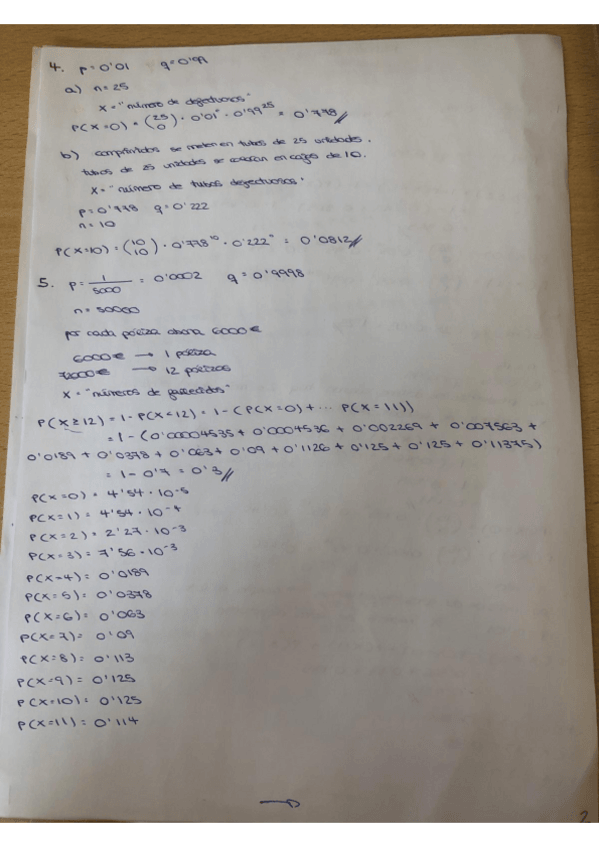 4. p=0'01 q=0'99
a) n=25
X="número de defectuosos"
P(X=0) = (25 0) · 0'01⁰ · 0'99²⁵ = 0'778
b) comprimidos se meten en tubos de 25 unidades.
tubos de 25 unidades se colocan en cajas de 10.
X="número de tubos defectuosos"
p=0'778 q=0'222
n=10
P(X=10) = (10 10) · 0'778¹⁰ · 0'222⁰ = 0'0812
5. p= 1/5000 = 0'0002 q=0'9998
n=50000
por cada póliza abona 6000€
6000€ → 1 póliza
72000€ → 12 pólizas
X="números de fallecidos"
P(X≥12) = 1-P(X<12) = 1-(P(X=0)+ ... P(X=11))
= 1-(0'00004535 + 0'0004536 + 0'002269 + 0'007563 +
0'0189 + 0'0378 + 0'063 + 0'09 + 0'1126 + 0'125 + 0'125 + 0'11375)
= 1-0'7 = 0'3
P(X=0) = 4'54 · 10-5
P(X=1) = 4'54 · 10-4
P(X=2) = 2'27 · 10-3
P(X=3) = 7'56 · 10-3
P(X=4) = 0'0189
P(X=5) = 0'0378
P(X=6) = 0'063
P(X=7) = 0'09
P(X=8) = 0'113
P(X=9) = 0'125
P(X=10) = 0'125
P(X=11) = 0'114
→
2